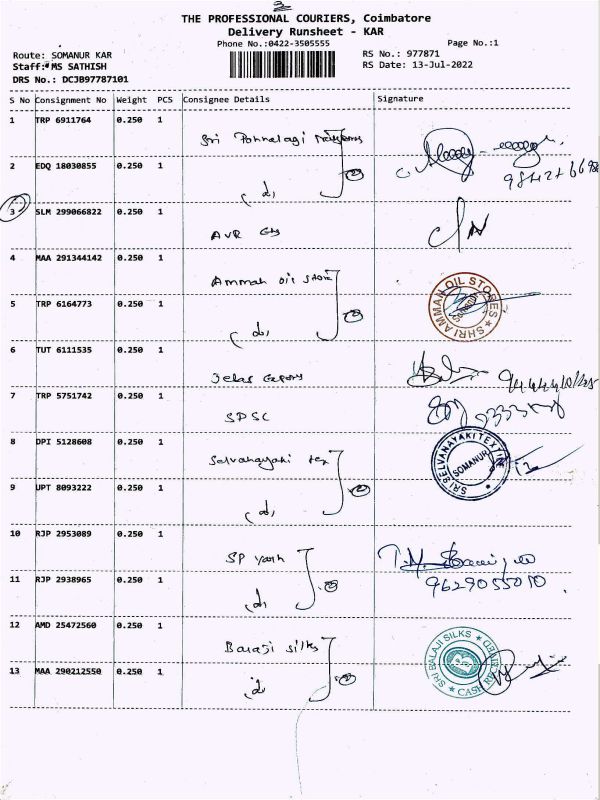 THE PROFESSIONAL COURIERS, Coimbatore
Delivery Runsheet - KAR
Phone No.:0422-3505555
Page No.:1
Route: SOMANUR KAR
RS No.: 977871
Staff: MS SATHISH
RS Date: 13-Jul-2022
DRS No.: DCJB97787101
S No Consignment No Weight PCS Consignee Details Signature
1 TRP 6911764 0.250 1
Sri
2 EDQ 18030855 0.250 1
3 SLM 299066822 0.250 1
AVR
4 MAA 291344142 0.250 1
Ammah Oil Store
SHRI AMMAN OIL STORES
5 TRP 6164773 0.250 1
6 TUT 6111535 0.250 1
7 TRP 5751742 0.250 1
SPSC
8 DPI 5128608 0.250 1
Selvanayaki tex
SRI SELVANAYAKI TEXTILE
SOMANUR
9 UPT 8093222 0.250 1
10 RJP 2953089 0.250 1
SP yarn
11 RJP 2938965 0.250 1
9629055010
12 AMD 25472560 0.250 1
Balaji silks
SRI BALAJI SILKS
13 MAA 290212550 0.250 1